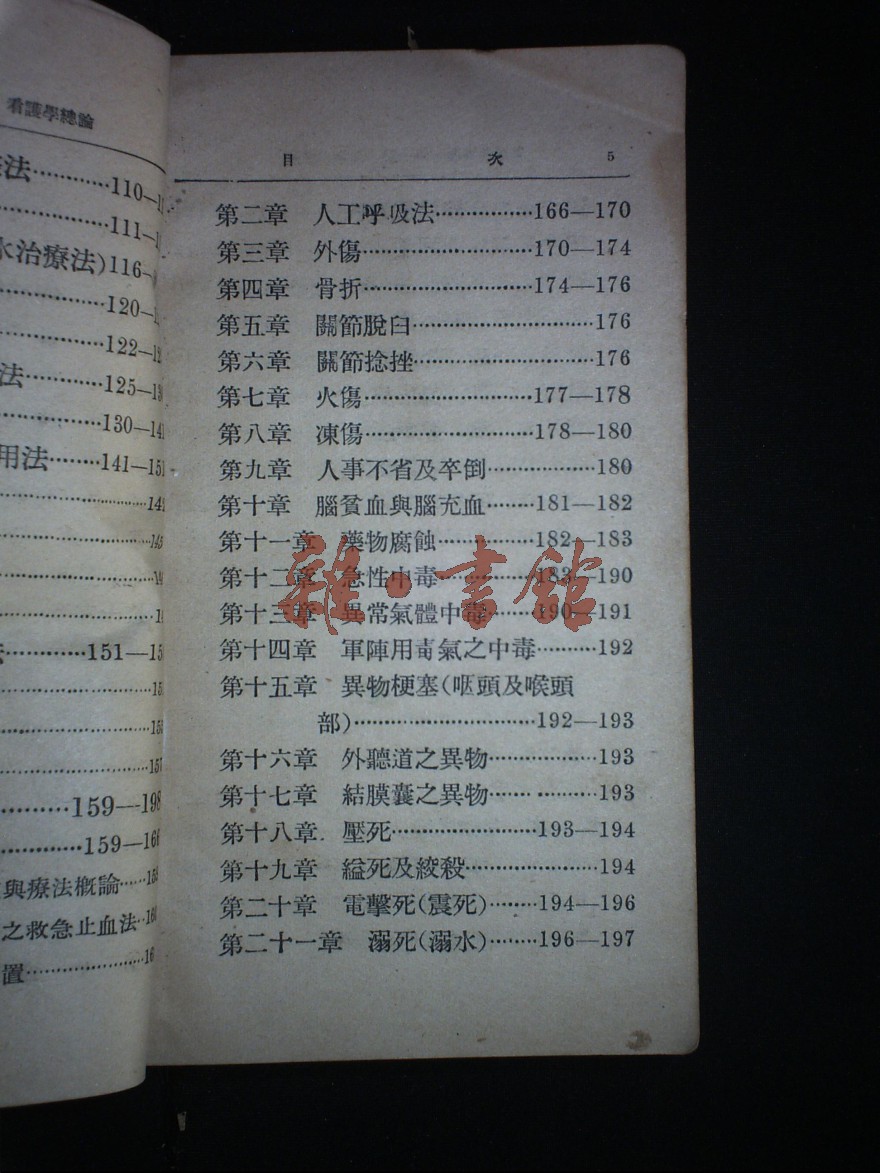 看護學總論
法…………110—
………………111—
水治療法)116—
………………120—
………………122—
法…………125—
………………130—
用法………141—151
151—
159—198
159—166
與療法概論……
之救急止血法…
置………………
目 次 5
第二章 人工呼吸法………………166—170
第三章 外傷…………………………170—174
第四章 骨折…………………………174—176
第五章 關節脫臼……………………………176
第六章 關節捻挫……………………………176
第七章 火傷…………………………177—178
第八章 凍傷…………………………178—180
第九章 人事不省及卒倒………………180
第十章 腦貧血與腦充血………181—182
第十一章 藥物腐蝕………………182—183
第十二章 急性中毒………………183—190
第十三章 異常氣體中毒………190—191
第十四章 軍陣用毒氣之中毒…………192
第十五章 異物梗塞(咽頭及喉頭
部)……………………………192—193
第十六章 外聽道之異物………………193
第十七章 結膜囊之異物………………193
第十八章 壓死………………………193—194
第十九章 縊死及絞殺……………………194
第二十章 電擊死(震死)………194—196
第二十一章 溺死(溺水)………196—197
雜·書館